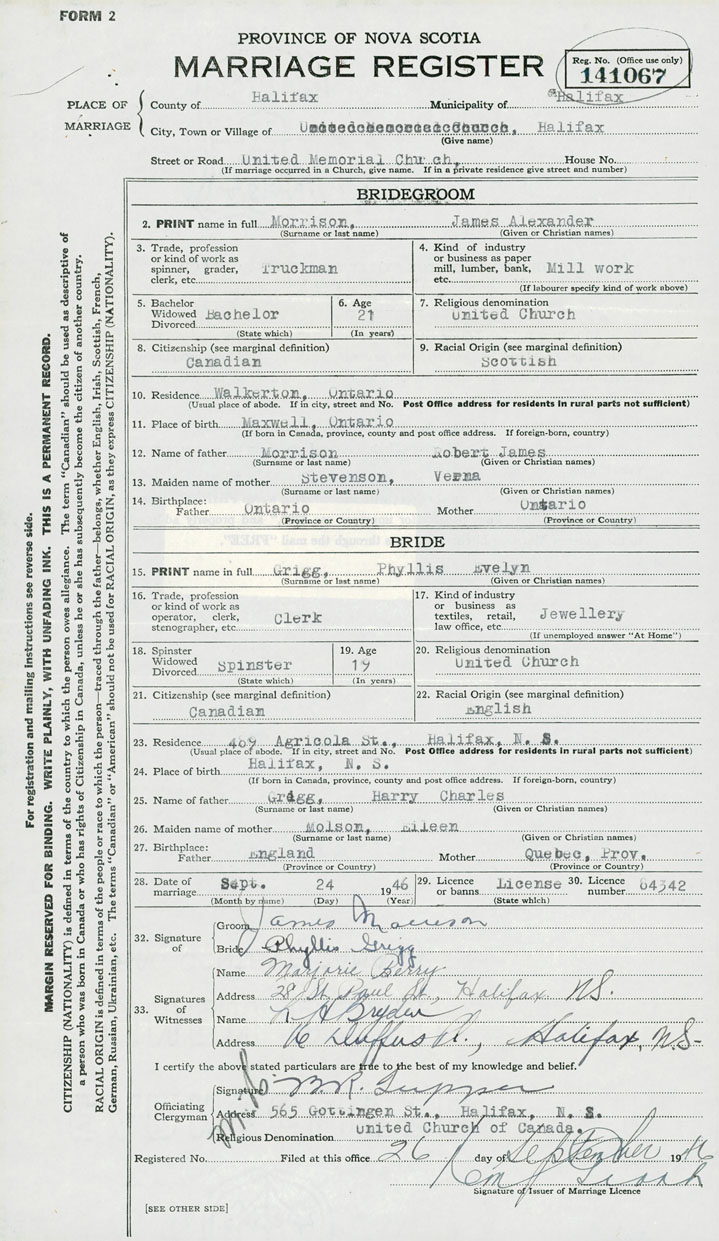 FORM 2
PROVINCE OF NOVA SCOTIA
MARRIAGE REGISTER
Reg. No. (Office use only)
141067
PLACE OF MARRIAGE
County of Halifax Municipality of Halifax
City, Town or Village of United Memorial Church, Halifax
(Give name)
Street or Road United Memorial Church, House No.
(If marriage occurred in a Church, give name. If in a private residence give street and number)
BRIDEGROOM
2. PRINT name in full Morrison, James Alexander
(Surname or last name) (Given or Christian names)
3. Trade, profession or kind of work as spinner, grader, clerk, etc. Truckman
4. Kind of industry or business as paper mill, lumber, bank, etc. Mill work
(If labourer specify kind of work above)
5. Bachelor Widowed Divorced Bachelor
(State which)
6. Age 21
(In years)
7. Religious denomination
United Church
8. Citizenship (see marginal definition)
Canadian
9. Racial Origin (see marginal definition)
Scottish
10. Residence Walkerton, Ontario
(Usual place of abode. If in city, street and No. Post Office address for residents in rural parts not sufficient)
11. Place of birth Maxwell, Ontario
(If born in Canada, province, county and post office address. If foreign-born, country)
12. Name of father Morrison Robert James
(Surname or last name) (Given or Christian names)
13. Maiden name of mother Stevenson, Verna
(Surname or last name) (Given or Christian names)
14. Birthplace:
Father Ontario Mother Ontario
(Province or Country) (Province or Country)
BRIDE
15. PRINT name in full Grigg, Phyllis Evelyn
(Surname or last name) (Given or Christian names)
16. Trade, profession or kind of work as operator, clerk, stenographer, etc. Clerk
17. Kind of industry or business as textiles, retail, law office, etc. Jewellery
(If unemployed answer "At Home")
18. Spinster Widowed Divorced Spinster
(State which)
19. Age 19
(In years)
20. Religious denomination
United Church
21. Citizenship (see marginal definition)
Canadian
22. Racial Origin (see marginal definition)
English
23. Residence 469 Agricola St., Halifax, N. S.
(Usual place of abode. If in city, street and No. Post Office address for residents in rural parts not sufficient)
24. Place of birth Halifax, N. S.
(If born in Canada, province, county and post office address. If foreign-born, country)
25. Name of father Grigg, Harry Charles
(Surname or last name) (Given or Christian names)
26. Maiden name of mother Molson, Eileen
(Surname or last name) (Given or Christian names)
27. Birthplace:
Father England Mother Quebec, Prov.
(Province or Country) (Province or Country)
28. Date of marriage Sept. 24 1946
(Month by name) (Day) (Year)
29. Licence or banns License
(State which)
30. Licence number 64342
32. Signature of
Groom James Morrison
Bride Phyllis Grigg
33. Signatures of Witnesses
Name Marjorie Berry
Address 28 St. Paul St., Halifax NS.
Name Bryden
Address 16 Duffus St., Halifax, N.S-
I certify the above stated particulars are true to the best of my knowledge and belief.
Officiating Clergyman
Signature Tupper
Address 565 Gottingen St., Halifax, N. S.
Religious Denomination United Church of Canada.
Registered No. Filed at this office 26 day of September 1946
Signature of Issuer of Marriage Licence
[SEE OTHER SIDE]
For registration and mailing instructions see reverse side.
MARGIN RESERVED FOR BINDING. WRITE PLAINLY, WITH UNFADING INK. THIS IS A PERMANENT RECORD.
CITIZENSHIP (NATIONALITY) is defined in terms of the country to which the person owes allegiance. The term "Canadian" should be used as descriptive of
a person who was born in Canada or who has rights of Citizenship in Canada, unless he or she has subsequently become the citizen of another country.
RACIAL ORIGIN is defined in terms of the people or race to which the person—traced through the father—belongs, whether English, Irish, Scottish, French,
German, Russian, Ukrainian, etc. The terms "Canadian" or "American" should not be used for RACIAL ORIGIN, as they express CITIZENSHIP (NATIONALITY).